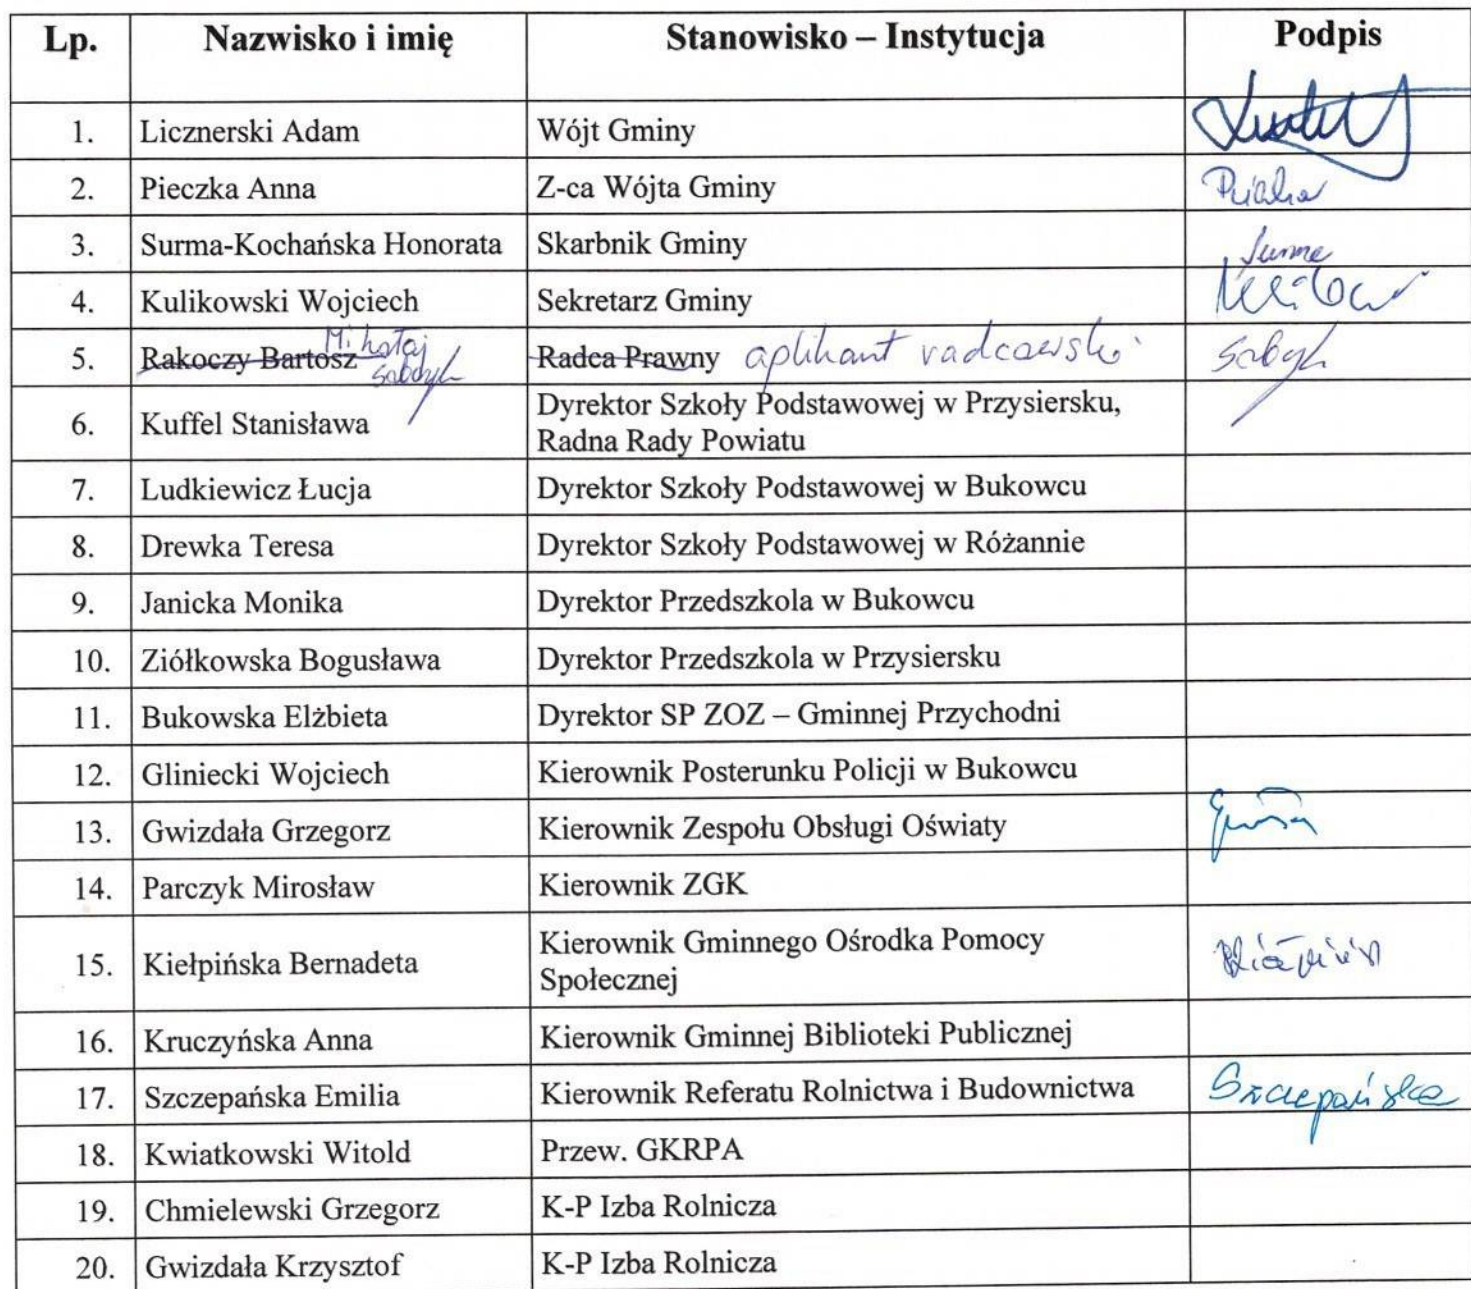 Lp. Nazwisko i imię Stanowisko – Instytucja Podpis
1. Licznerski Adam Wójt Gminy
2. Pieczka Anna Z-ca Wójta Gminy
3. Surma-Kochańska Honorata Skarbnik Gminy
4. Kulikowski Wojciech Sekretarz Gminy
Mikołaj
5. Rakoczy Bartosz Radca Prawny aplikant radcowski
6. Kuffel Stanisława Dyrektor Szkoły Podstawowej w Przysiersku,
Radna Rady Powiatu
7. Ludkiewicz Łucja Dyrektor Szkoły Podstawowej w Bukowcu
8. Drewka Teresa Dyrektor Szkoły Podstawowej w Różannie
9. Janicka Monika Dyrektor Przedszkola w Bukowcu
10. Ziółkowska Bogusława Dyrektor Przedszkola w Przysiersku
11. Bukowska Elżbieta Dyrektor SP ZOZ – Gminnej Przychodni
12. Gliniecki Wojciech Kierownik Posterunku Policji w Bukowcu
13. Gwizdała Grzegorz Kierownik Zespołu Obsługi Oświaty
14. Parczyk Mirosław Kierownik ZGK
15. Kiełpińska Bernadeta Kierownik Gminnego Ośrodka Pomocy
Społecznej
16. Kruczyńska Anna Kierownik Gminnej Biblioteki Publicznej
17. Szczepańska Emilia Kierownik Referatu Rolnictwa i Budownictwa Szczepańska
18. Kwiatkowski Witold Przew. GKRPA
19. Chmielewski Grzegorz K-P Izba Rolnicza
20. Gwizdała Krzysztof K-P Izba Rolnicza